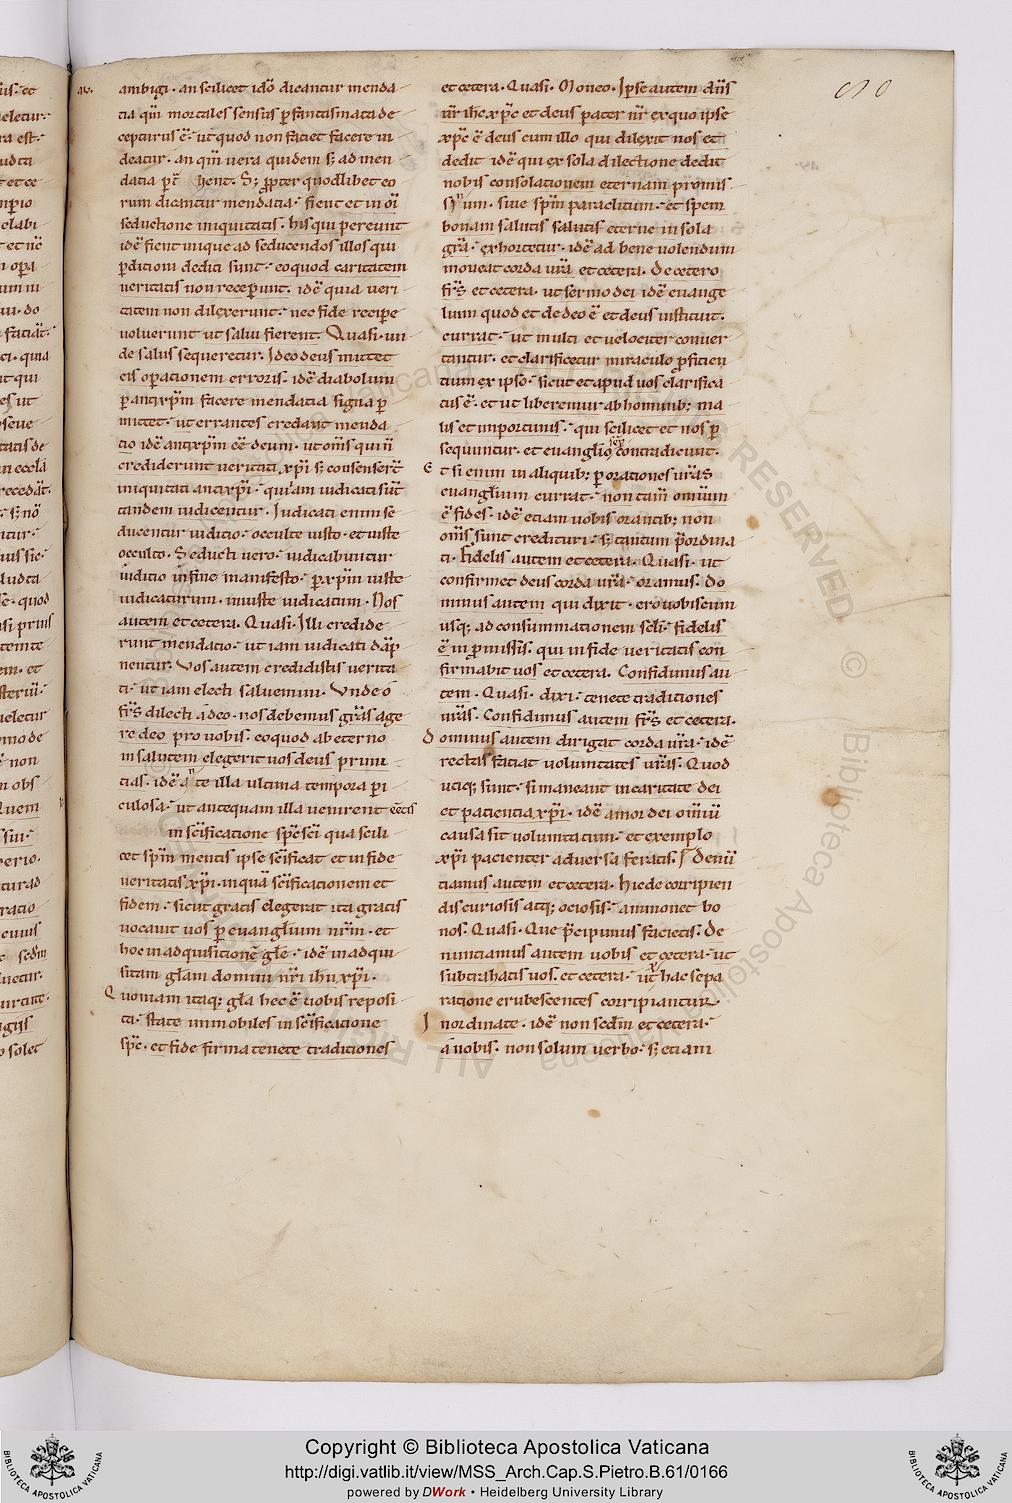 ambigi. an scilicet idõ dicantur menda
cia qm̃ mortales sensus p̲ fantasmata de
cepturus ẽ. ut quod non faciet facere ui
deatur. an qm̃ uera quidem s; ad men
rum dicantur mendatia. fient et in oĩ
seductione iniquitatis. his qui pereunt
idẽ fient inique ad seducendos illos qui
p̲ditioni dediti sunt. eo quod caritatem
ueritatis non recep̲unt. idẽ quia ueri
tatem non dilexerunt. nec fide recipe
uoluerunt ut salui fierent. Quasi. un
de salus sequeretur. Ideo deus mittet
eis op̲ationem erroris. idẽ diabolum
p̲ antixp̃m facere mendatia signa p̲
mittet. ut errantes credant menda
tio idẽ antixp̃m eẽ deum. ut om̃s qui ñ
crediderunt ueritati xp̃i s; consenserũt
iniquitati antixp̃i. qui iam iudicati sũt
tandem iudicentur. Iudicati enim se
ducentur iuditio. occulte iusto. et iuste
occulto. Seducti uero. iudicabuntur
iuditio in fine manifesto. p̲ xp̃m iuste
iudicaturum. iniuste iudicatum. Nos
autem et cetera. Quasi. Illi credide
runt mendatio. ut iam iudicati dãp
nentur. Vos autem credidistis uerita
ti. ut iam electi saluemini. Vnde o
fr̃s dilecti a deo. nos debemus gr̃as age
re deo pro uobis. eo quod ab eterno
in salutem elegerit uos deus primi
tias. idẽ ante illa ultima tempora p̲i
culosa. ut antequam illa uenirent eẽtis
in sc̃ificatione sp̃c sc̃i qua scili
cet sp̃m mentis ipse sc̃ificat et in fide
ueritatis xp̃i. in quã sc̃ificationem et
fidem. sicut gratis elegerat ita gratis
uocauit uos p̲ euangl̃ium nr̃m. et
hoc in adquisitionẽ gl̃e. idẽ in adqui
sitam gl̃am domini nr̃i ih̃u xp̃i.
Quoniam itaq; gl̃a hec ẽ uobis reposi
ta. state immobiles in sc̃ificatione
sp̃c. et fide firma tenete traditiones
et cetera. Quasi. Moneo. Ipse autem dñs
nr̃ ih̃c xp̃c et deus pater nr̃ ex quo ipse
xp̃c ẽ deus cum illo qui dilexit nos et
dedit idẽ qui ex sola dilectione dedit
nobis consolationem eternam p̲mis
sum. siue sp̃m paraclitum. et spem
bonam salutis salutis eterne in sola
gr̃a. exhortetur. idẽ ad bene uolendum
moueat corda ur̃a et cetera. De cetero
fr̃s et cetera. ut sermo dei idẽ euange
lium quod et de deo ẽ et deus instituit.
currat. ut multi et uelociter conuer
tantur. et clarificetur miraculo p̲ficien
tium ex ipso. sicut et apud uos clarifica
tus ẽ. et ut liberemur ab hominib; ma
lis et importunis. qui scilicet et nos p̲
sequuntur. et euangl̃io contradicunt.
Et si enim in aliquib; p̲ orationes ur̃as
euangl̃ium currat. non tam̃ omnium
ẽ fides. idẽ etiam uobis orantib; non
om̃s sunt credituri. s; tantum p̃ordina
ti. Fidelis autem et cetera. Quasi. ut
confirmet deus corda ur̃a. oramus. Do
minus autem qui dixit. ero uobiscum
usq; ad consummationem scl̃i. fidelis
ẽ in p̲missis. qui in fide ueritatis con
firmabit uos et cetera. Confidimus au
tem. Quasi. dixi. tenete traditiones
nr̃as. Confidimus autem fr̃s et cetera.
Dominus autem dirigat corda ur̃a. idẽ
rectas faciat uoluntates ur̃as. Quod
utiq; sunt. si maneant in caritate dei
et patientia xp̃i. idẽ amor dei omniũ
causa sit uoluntatum. et exemplo
xp̃i pacienter aduersa feratis. Denũ
tiamus autem et cetera. hic de corripien
dis curiosis atq; ociosis. ammonet bo
nos. Quasi. Que p̃cipimus facietis. De
nuntiamus autem uobis et cetera. ut
subtrahatis uos. et cetera. ut hac sepa
ratione erubescentes corripiantur.
Inordinate. idẽ non scd̃m et cetera.
a nobis. non solum uerbo. s; etiam
Copyright © Biblioteca Apostolica Vaticana
http://digi.vatlib.it/view/MSS_Arch.Cap.S.Pietro.B.61/0166
powered by DWork • Heidelberg University Library
BIBLIOTECA APOSTOLICA VATICANA
BIBLIOTECA APOSTOLICA VATICANA